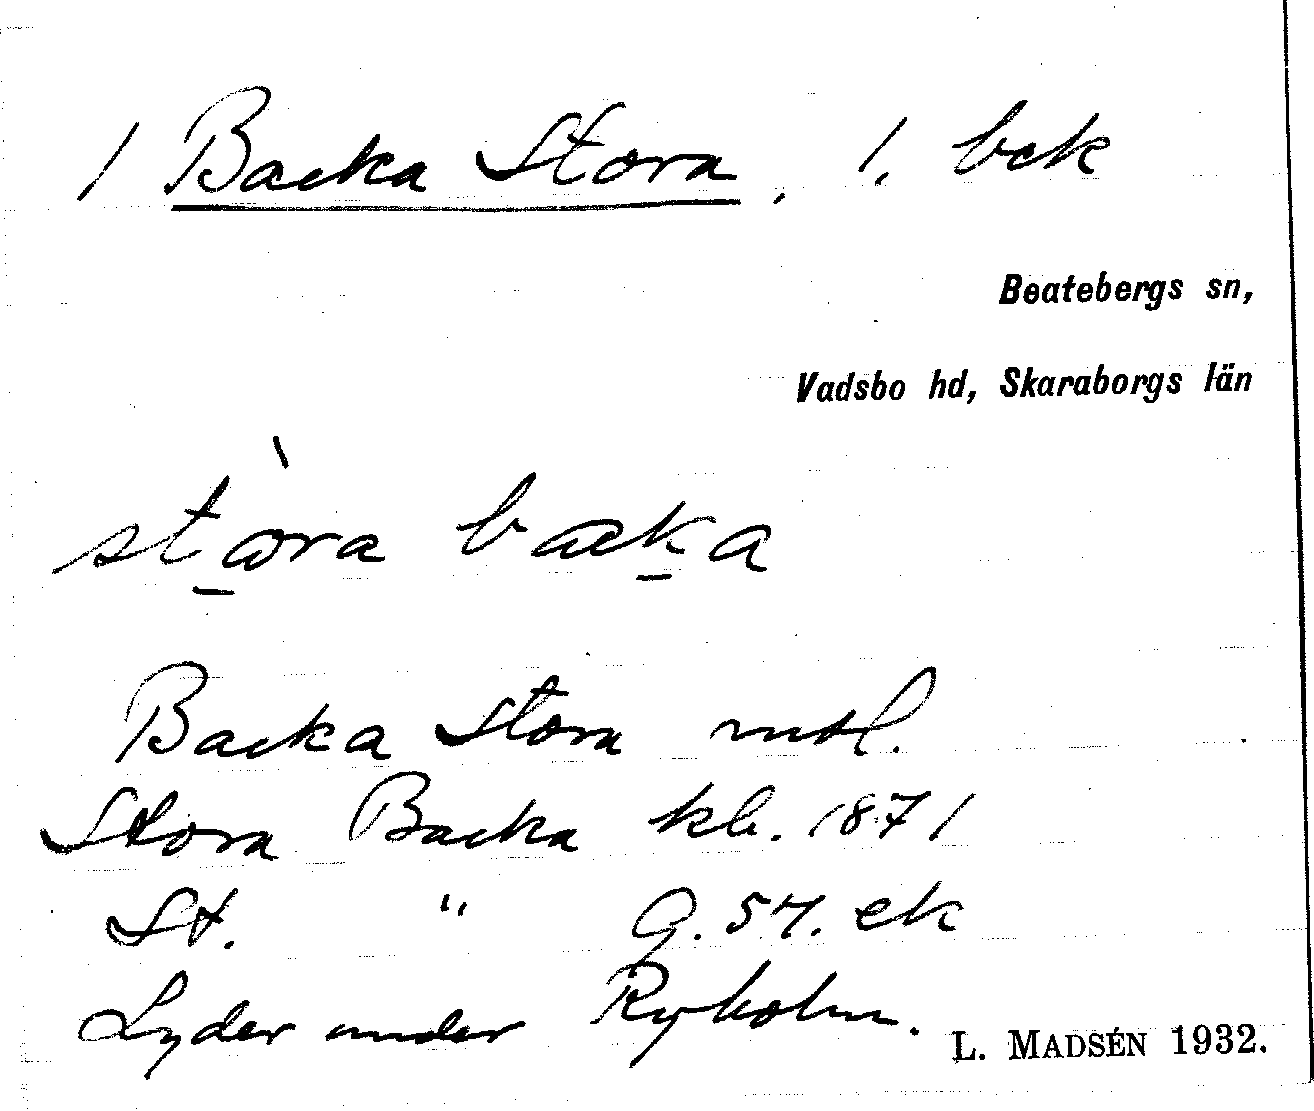 1 Backa Stora, 1. bek
Beatebergs sn,
Vadsbo hd, Skaraborgs län
stòra backa
Backa Stora mtl.
Stora Backa kb. 1871
St. " G. 57. ek
Lyder under Ryholm.
L. MADSÉN 1932.